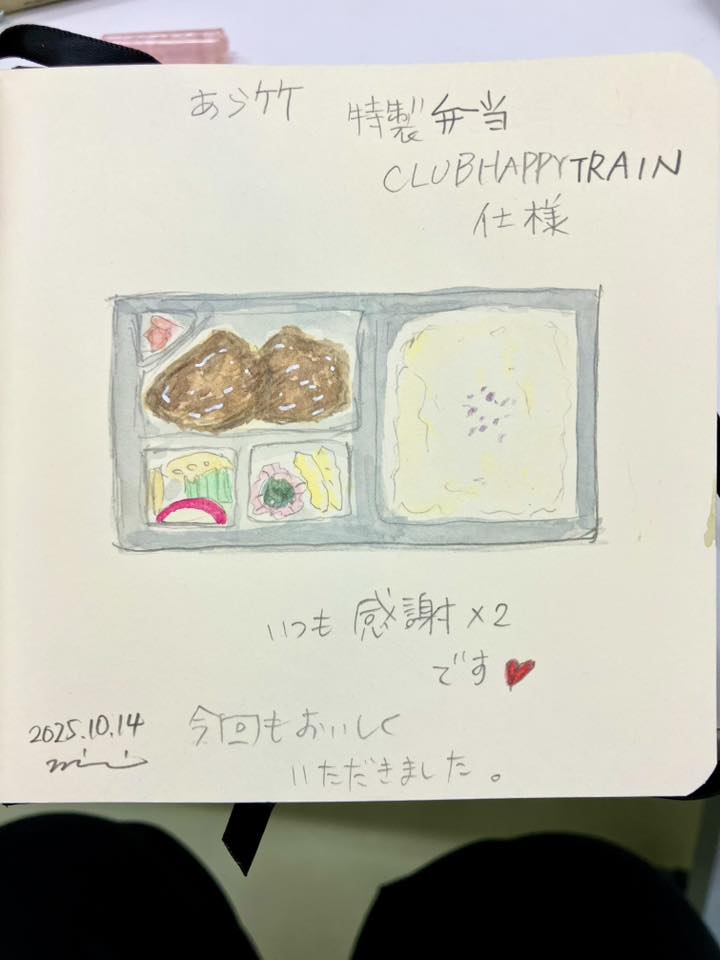 あら竹 特製弁当
CLUBHAPPYTRAIN
仕様
いつも 感謝×2
です
2025.10.14
今回もおいしく
いただきました。